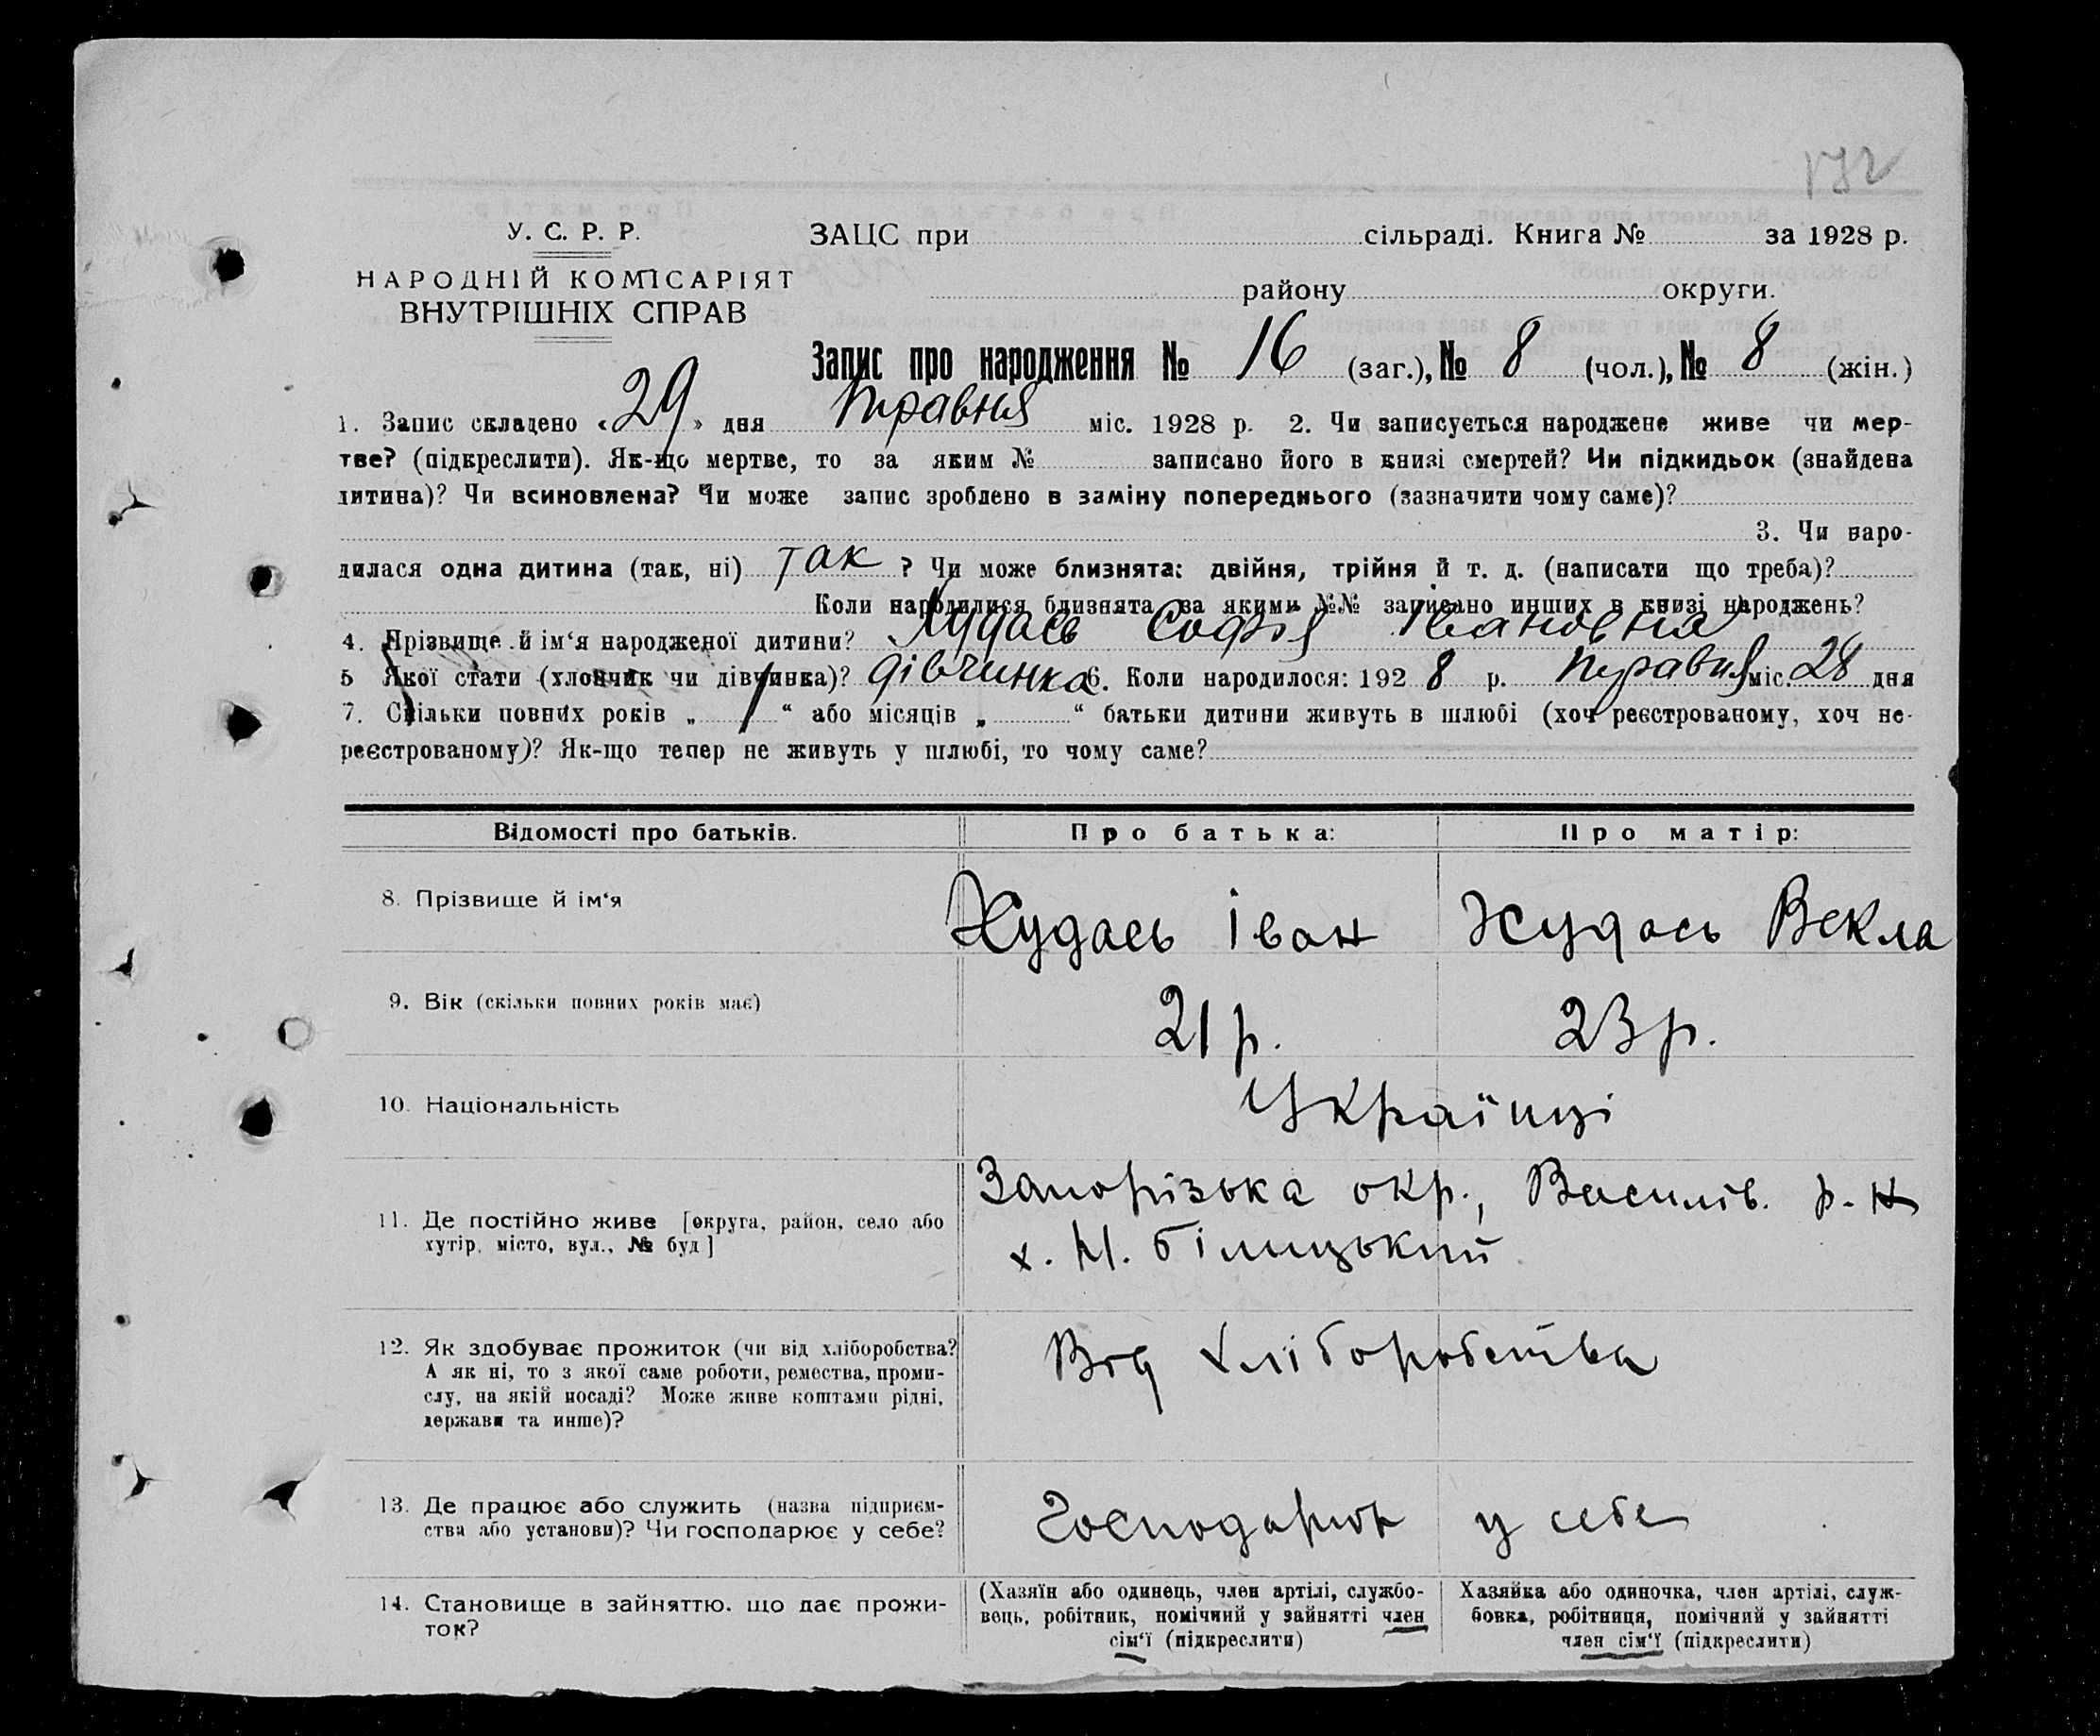 У. С. Р. Р.
НАРОДНІЙ КОМІСАРІЯТ
ВНУТРІШНІХ СПРАВ
ЗАЦС при сільраді. Книга № за 1928 р.
району округи.
Запис про народження № 16 (заг.), № 8 (чол.), № 8 (жін.)
1. Запис складено «29» дня травня міс. 1928 р. 2. Чи записується народжене живе чи мер-
тве? (підкреслити). Як-що мертве, то за яким № записано його в книзі смертей? Чи підкидьок (знайдена
дитина)? Чи всиновлена? Чи може запис зроблено в заміну попереднього (зазначити чому саме)?
3. Чи наро-
дилася одна дитина (так, ні) так ? Чи може близнята: двійня, трійня й т. д. (написати що треба)?
Коли народилися близнята, за якими №№ записано инших в книзі народжень?
4. Прізвище й ім‘я народженої дитини? Худась Софія Івановна
5 Якої стати (хлопчик чи дівчинка)? дівчинка 6. Коли народилося: 1928 р. травня міс. 28 дня
7. Скільки повних років „ 1 “ або місяців „ “ батьки дитини живуть в шлюбі (хоч реєстрованому, хоч не-
реєстрованому)? Як-що тепер не живуть у шлюбі, то чому саме?
Відомості про батьків. Про батька: Про матір:
8. Прізвище й ім‘я Худась Іван Худась Векла
9. Вік (скільки повних років має) 21 р. 23 р.
10. Національність Українці
11. Де постійно живе [округа, район, село або
хутір, місто, вул., № буд]
Запорізька окр., Василів. р-н
х. М. Білицький
12. Як здобуває прожиток (чи від хліборобства?
А як ні, то з якої саме роботи, ремества, проми-
слу, на якій посаді? Може живе коштами рідні,
держави та инше)?
Від хліборобства
13. Де працює або служить (назва підприєм-
ства або установи)? Чи господарює у себе?
Господарюв у себе
14. Становище в зайняттю, що дає прожи-
ток?
(Хазяїн або одинець, член артілі, службо-
вець, робітник, помічний у зайнятті член
сім‘ї (підкреслити)
Хазяйка або одиночка, член артілі, служ-
бовка, робітниця, помічний у зайнятті
член сім‘ї (підкреслити)